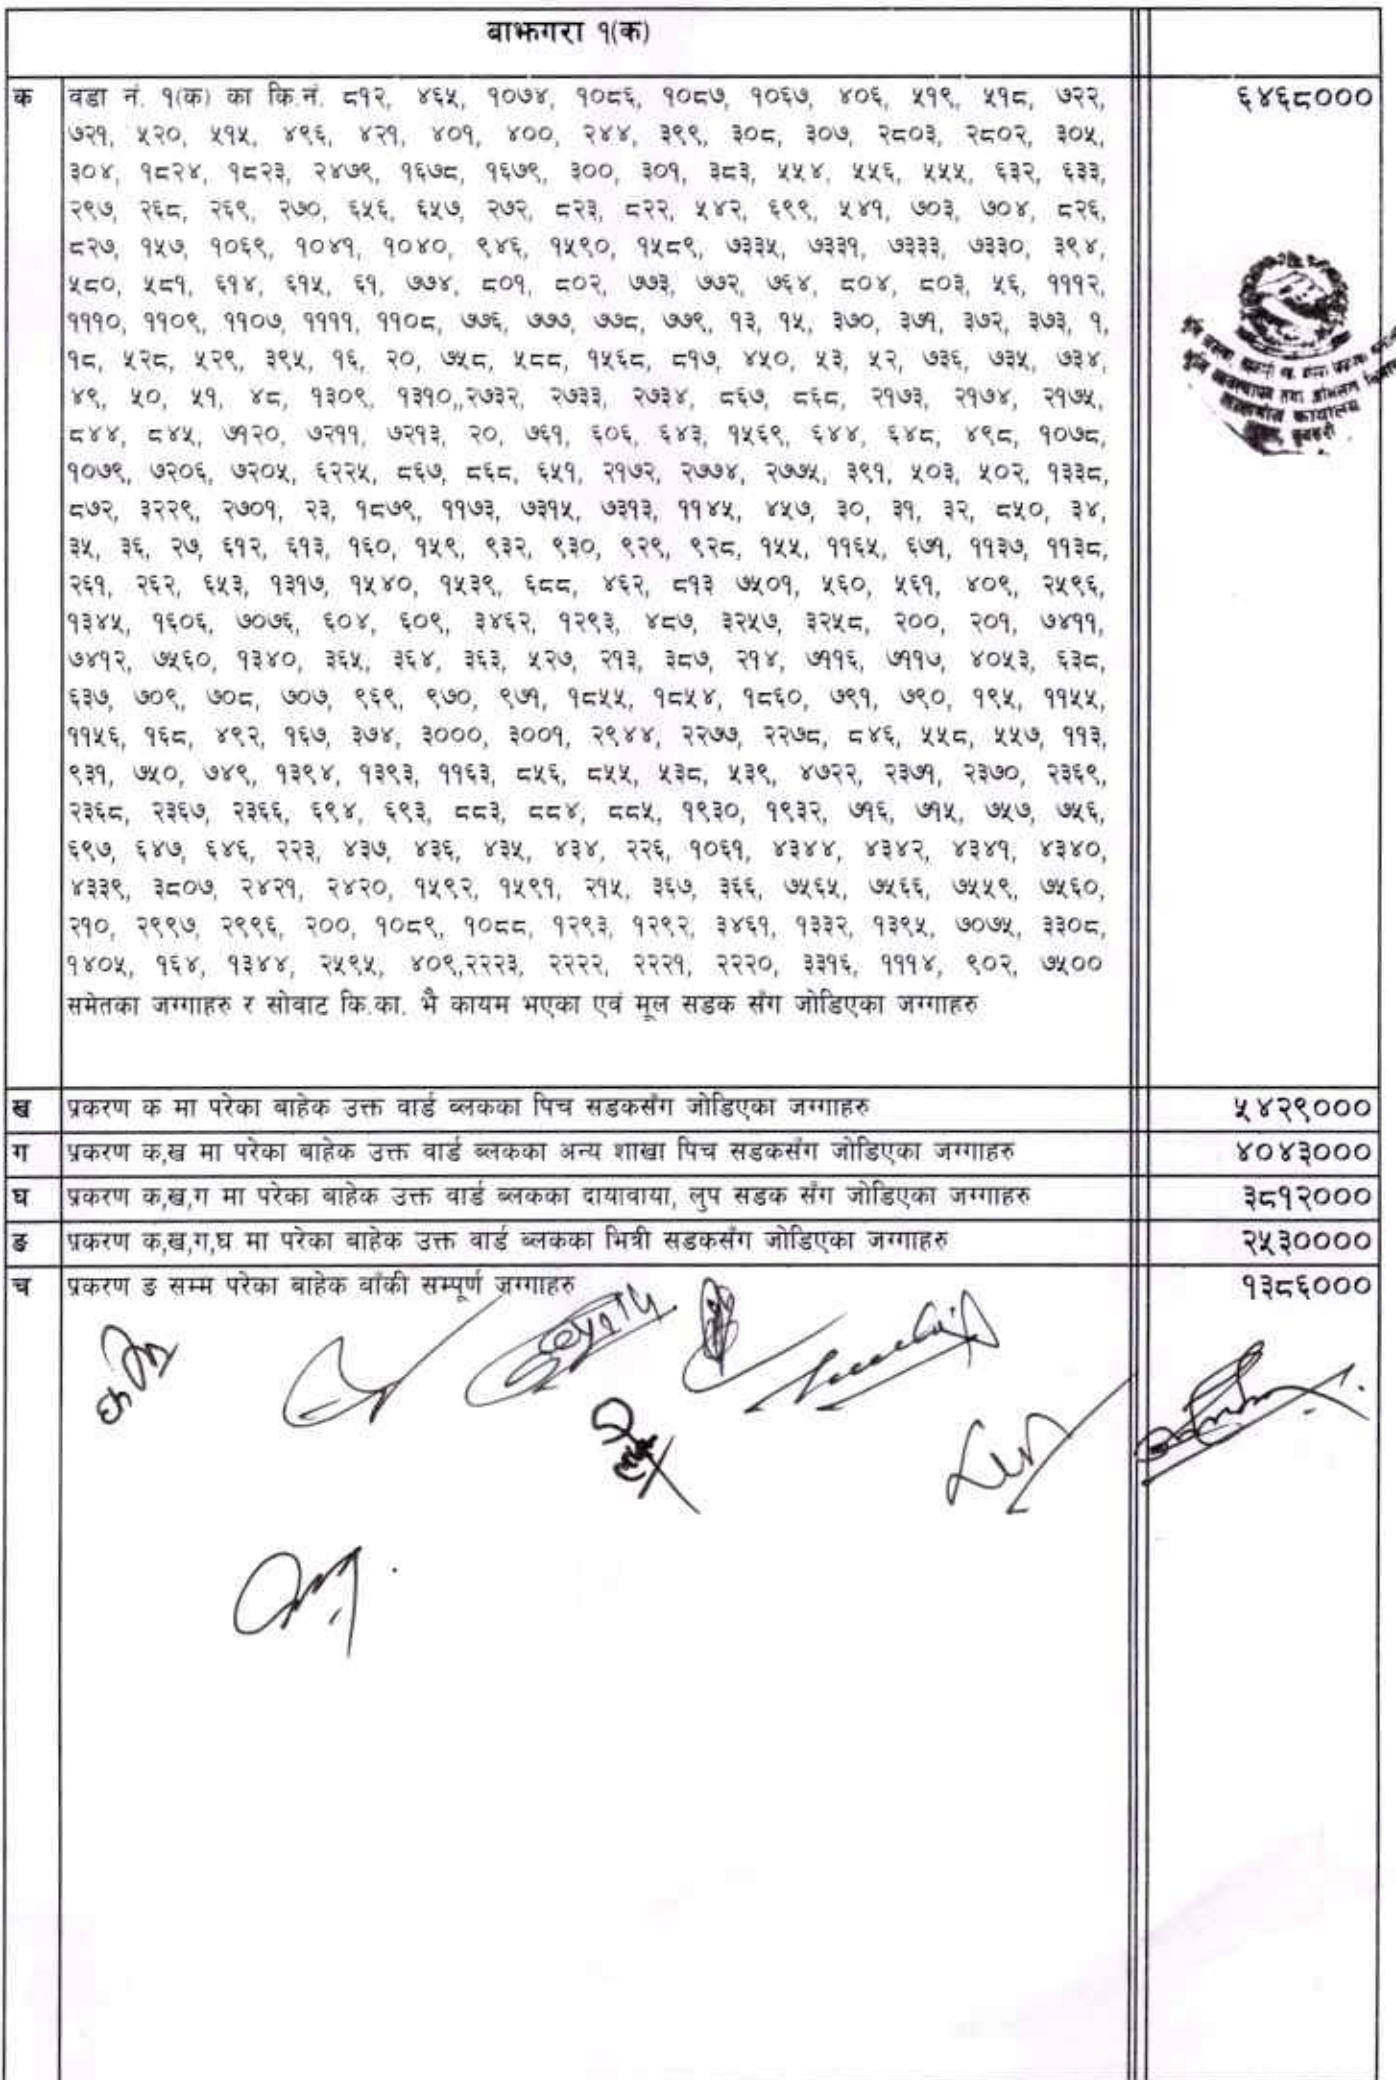 बाझगरा १(क)
क वडा नं. १(क) का कि.नं. ८१२, ४६५, १०७४, १०८६, १०८७, १०६७, ४०६, ५१९, ५१८, ७२२, ६४६८०००
७२१, ५२०, ५१५, ४९६, ४२१, ४०१, ४००, २४४, ३९९, ३०८, ३०७, २८०३, २८०२, ३०५,
३०४, १८२४, १८२३, २४७९, १६७८, १६७९, ३००, ३०१, ३८३, ५५४, ५५६, ५५५, ६३२, ६३३,
२९७, २६८, २६९, २७०, ६५६, ६५७, २७२, ८२३, ८२२, ५४२, ६९९, ५४१, ७०३, ७०४, ८२६,
८२७, १५७, १०६९, १०४१, १०४०, ९४६, १५९०, १५८९, ७३३५, ७३३१, ७३३३, ७३३०, ३९४,
५८०, ५८१, ६१४, ६१५, ६१, ७७४, ८०१, ८०२, ७७३, ७७२, ७६४, ८०४, ८०३, ५६, १११२,
१११०, ११०९, ११०७, ११११, ११०८, ७७६, ७७७, ७७८, ७७९, १३, १५, ३७०, ३७१, ३७२, ३७३, १,
१८, ५२८, ५२९, ३९५, १६, २०, ७५८, ५८८, १५६८, ८१७, ४५०, ५३, ५२, ७३६, ७३५, ७३४,
४९, ५०, ५१, ४८, १३०९, १३१०,,२७३२, २७३३, २७३४, ८६७, ८६८, २१७३, २१७४, २१७५,
८४४, ८४५, ७१२०, ७२११, ७२१३, २०, ७६१, ६०६, ६४३, १५६९, ६४४, ६४८, ४९८, १०७८,
१०७९, ७२०६, ७२०५, ६२२५, ८६७, ८६८, ६५१, २१७२, २७७४, २७७५, ३९१, ५०३, ५०२, १३३८,
८७२, ३२२९, २७०१, २३, १८७९, ११७३, ७३१५, ७३१३, ११४५, ४५७, ३०, ३१, ३२, ८५०, ३४,
३५, ३६, २७, ६१२, ६१३, १६०, १५९, ९३२, ९३०, ९२९, ९२८, १५५, ११६५, ६७१, ११३७, ११३८,
२६१, २६२, ६५३, १३१७, १५४०, १५३९, ६८८, ४६२, ८१३ ७५०१, ५६०, ५६१, ४०९, २५९६,
१३४५, १६०६, ७०७६, ६०४, ६०९, ३४६२, १२९३, ४८७, ३२५७, ३२५८, २००, २०१, ७४११,
७४१२, ७५६०, १३४०, ३६५, ३६४, ३६३, ५२७, २१३, ३८७, २१४, ७११६, ७११७, ४०५३, ६३८,
६३७, ७०९, ७०८, ७०७, ९६९, ९७०, ९७१, १८५५, १८५४, १८६०, ७९१, ७९०, १९५, ११५५,
११५६, १६८, ४९२, १६७, ३७४, ३०००, ३००१, २९४४, २२७७, २२७८, ८४६, ५५८, ५५७, ११३,
९३१, ७५०, ७४९, १३९४, १३९३, ११६३, ८५६, ८५५, ५३८, ५३९, ४७२२, २३७१, २३७०, २३६९,
२३६८, २३६७, २३६६, ६९४, ६९३, ८८३, ८८४, ८८५, १९३०, १९३२, ७१६, ७१५, ७५७, ७५६,
६९७, ६४७, ६४६, २२३, ४३७, ४३६, ४३५, ४३४, २२६, १०६१, ४३४४, ४३४२, ४३४१, ४३४०,
४३३९, ३८०७, २४२१, २४२०, १५९२, १५९१, २१५, ३६७, ३६६, ७५६५, ७५६६, ७५५९, ७५६०,
२१०, २९९७, २९९६, २००, १०८९, १०८८, १२९३, १२९२, ३४६१, १३३२, १३९५, ७०७५, ३३०८,
१४०५, १६४, १३४४, २५९५, ४०९,२२२३, २२२२, २२२१, २२२०, ३३१६, १११४, ९०२, ७५००
समेतका जग्गाहरु र सोवाट कि.का. भै कायम भएका एवं मूल सडक सँग जोडिएका जग्गाहरु
ख प्रकरण क मा परेका बाहेक उक्त वार्ड ब्लकका पिच सडकसँग जोडिएका जग्गाहरु ५४२९०००
ग प्रकरण क,ख मा परेका बाहेक उक्त वार्ड ब्लकका अन्य शाखा पिच सडकसँग जोडिएका जग्गाहरु ४०४३०००
घ प्रकरण क,ख,ग मा परेका बाहेक उक्त वार्ड ब्लकका दायावाया, लुप सडक सँग जोडिएका जग्गाहरु ३८१२०००
ङ प्रकरण क,ख,ग,घ मा परेका बाहेक उक्त वार्ड ब्लकका भित्री सडकसँग जोडिएका जग्गाहरु २५३००००
च प्रकरण ङ सम्म परेका बाहेक बाँकी सम्पूर्ण जग्गाहरु १३८६०००